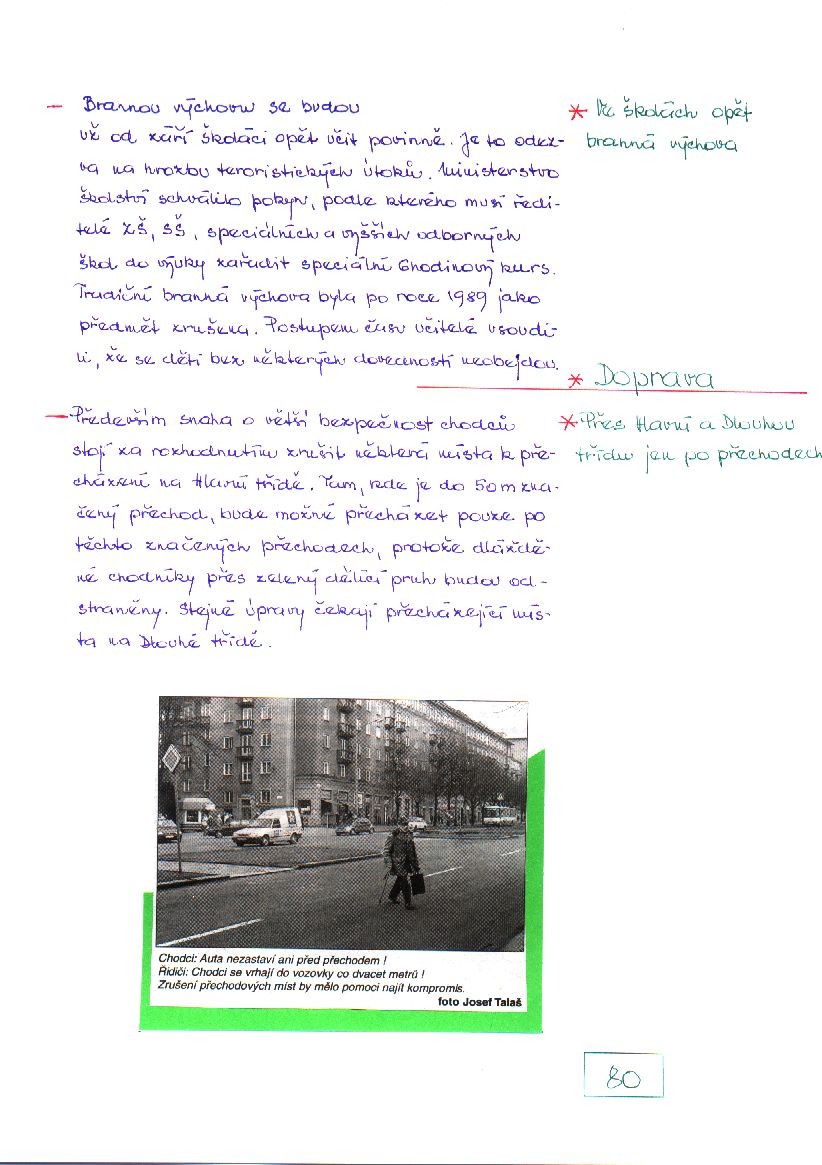 - Brannou výchovu se budou
už od září školáci opět učit povinně. Je to odez-
va na hrozbu teroristických útoků. Ministerstvo
školství schválilo pokyn, podle kterého musí ředi-
telé ZŠ, SŠ, speciálních a vyšších odborných
škol do výuky zařadit speciální 6hodinový kurs.
Tradiční branná výchova byla po roce 1989 jako
předmět zrušena. Postupem času učitelé usoudi-
li, že se děti bez některých dovedností neobejdou.
* Ve školách opět
branná výchova
* Doprava
- Především snaha o větší bezpečnost chodců
stojí za rozhodnutím zrušit některá místa k pře-
cházení na Hlavní třídě. Tam, kde je do 50m zna-
čený přechod, bude možné přecházet pouze po
těchto značených přechodech, protože dláždě-
né chodníky přes zelený dělící pruh budou od-
straněny. Stejné úpravy čekají přecházející mís-
ta na Dlouhé třídě.
* Přes Hlavní a Dlouhou
třídu jen po přechodech
Chodci: Auta nezastaví ani před přechodem !
Řidiči: Chodci se vrhají do vozovky co dvacet metrů !
Zrušení přechodových míst by mělo pomoci najít kompromis.
foto Josef Talaš
80